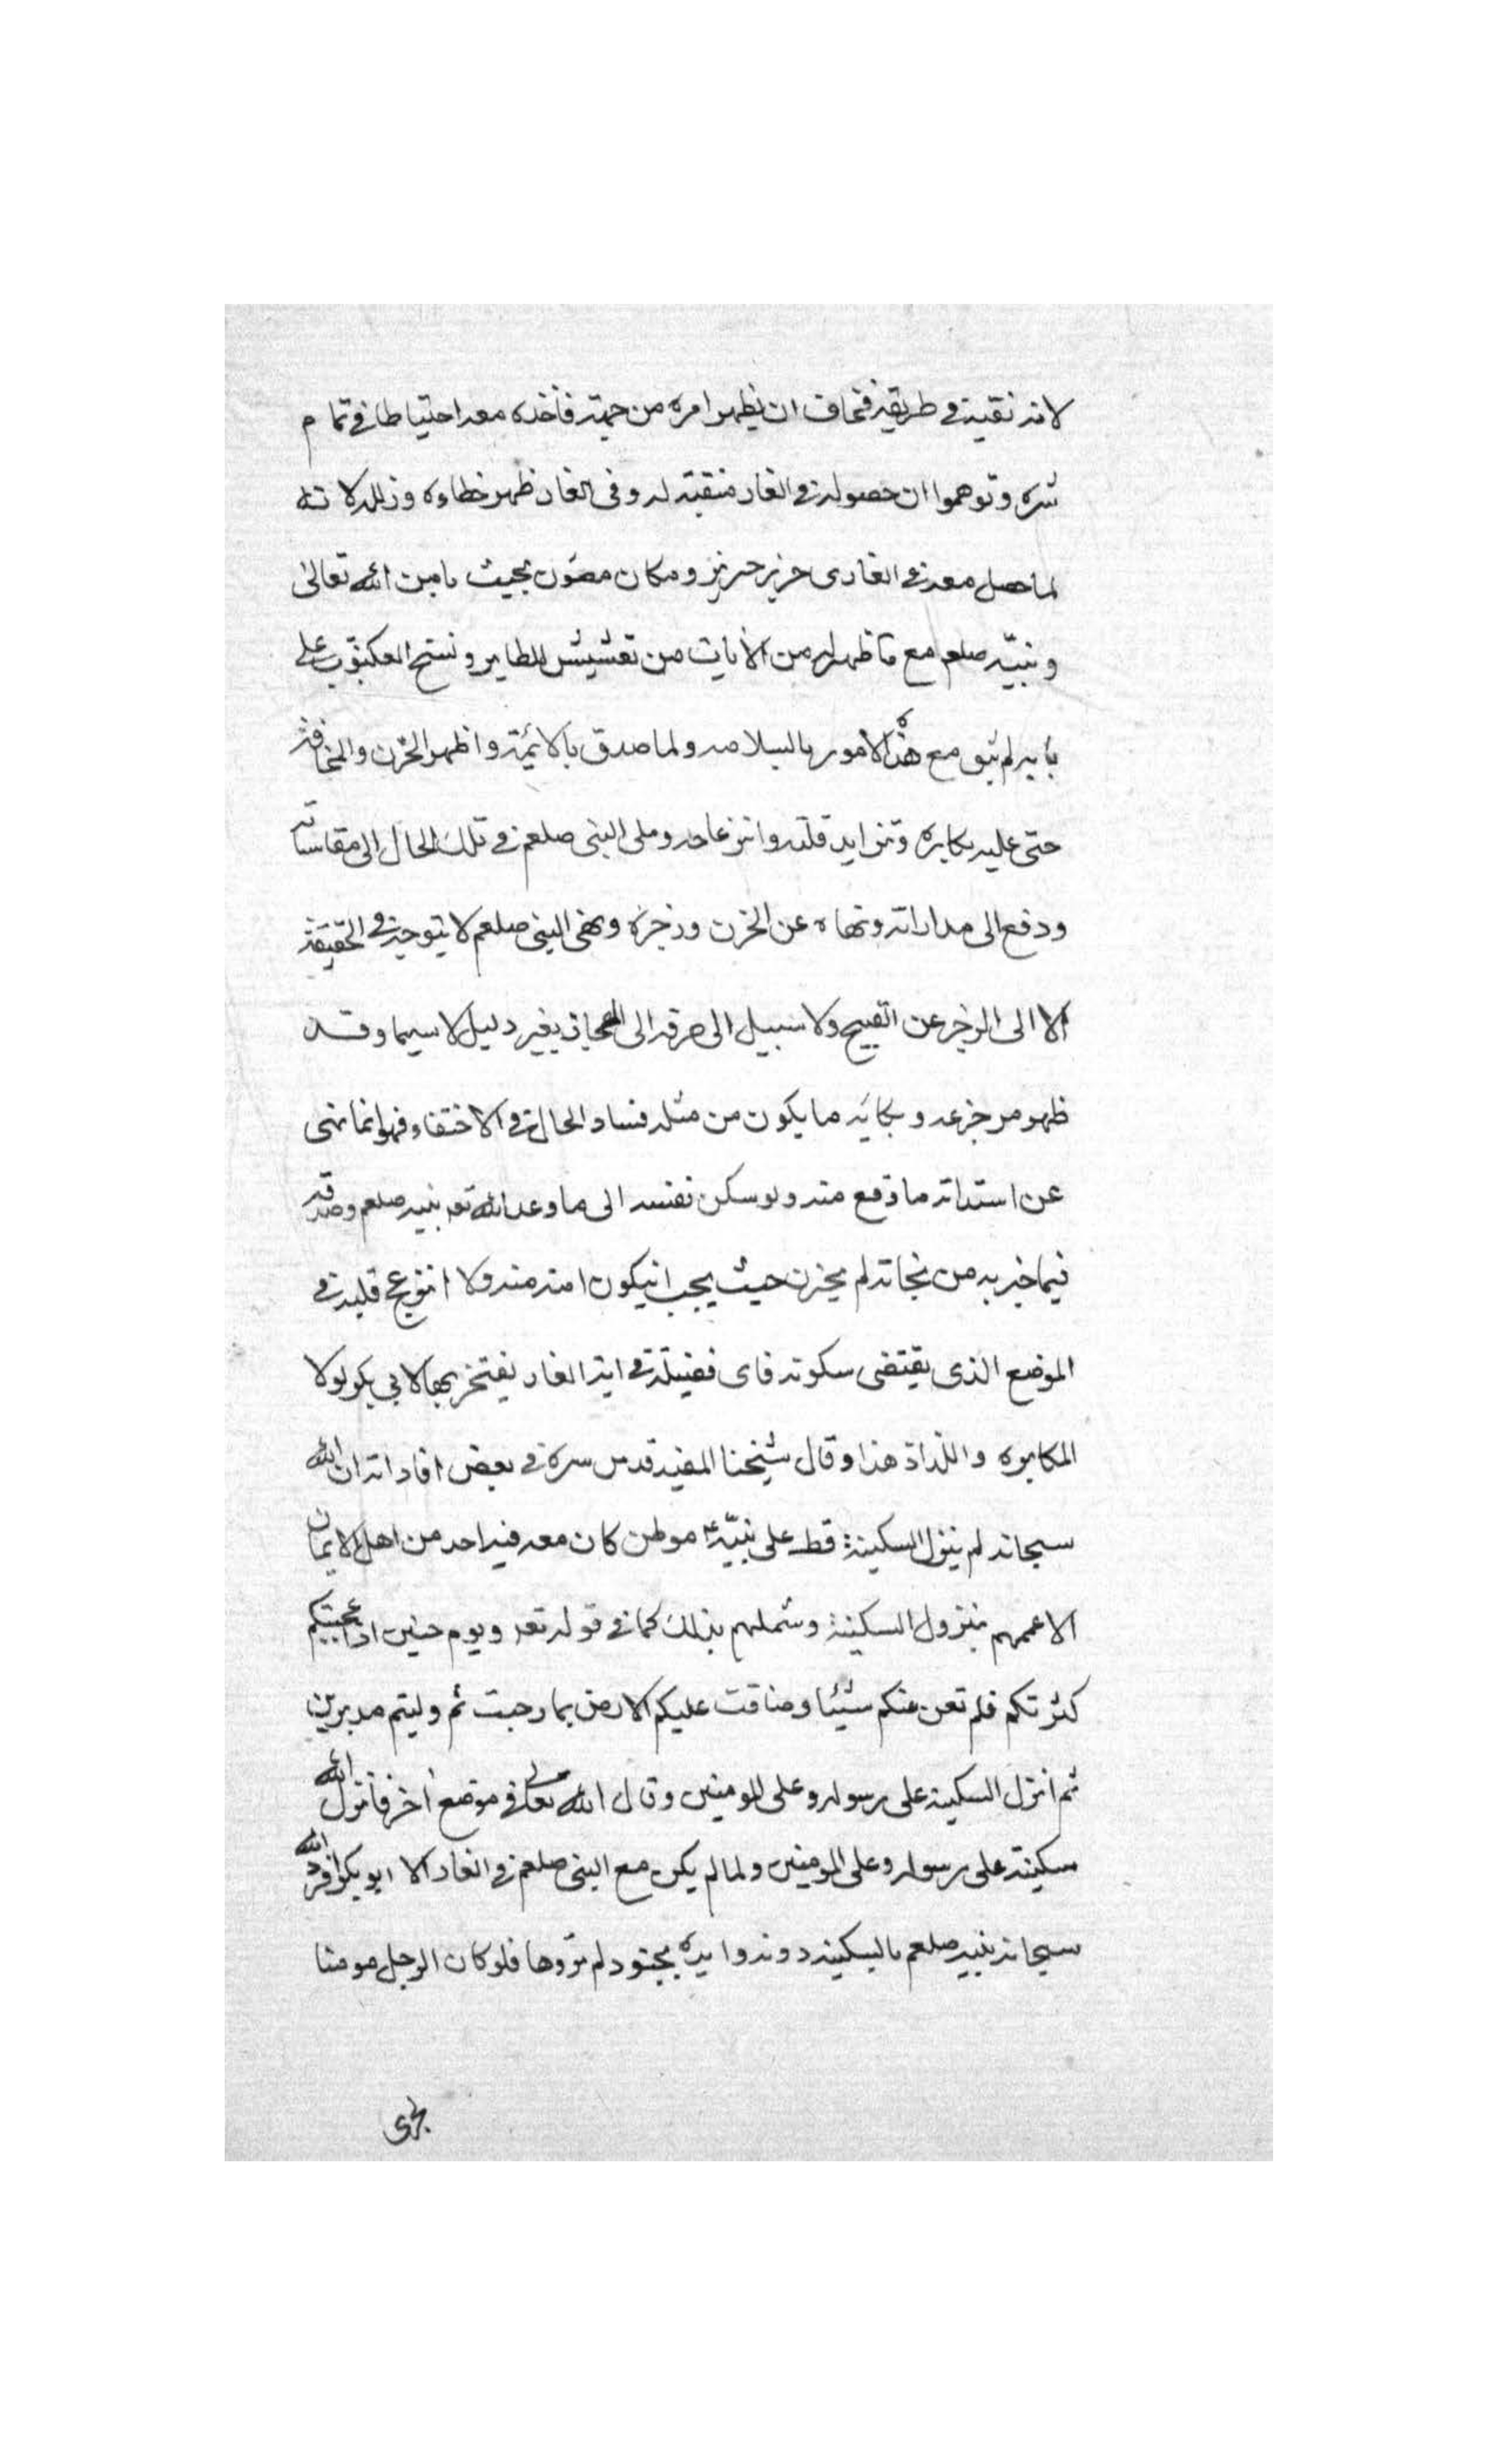 لانه نقيه في طريقه فخاف ان يظهر امره من جهته فاخذه معه احتياطا في تمام
شره وتوهموا ان حصوله في الغار منقبة له وفي الغار ظهر خطاءه وزلله لانه
لما حصل معه في الغار في حرز حريز ومكان مصون بحيث يامن الله تعالى
ونبيّه صلعم مع ما ظهر له من الآيات من تعشيش الطاير ونسج العكنبوت على
بابه لم يثق مع هذه الامور بالسلامه ولما صدق بالايته واظهر الحزن والمخافة
حتى عليه بكايره وتزايد قلقه وانزعاجه وملى النبى صلعم في تلك الحال الى مقاساته
ودفع الى مداراته ونهاه عن الحزن وزجره ونهى النبى صلعم لا يتوجه في الحقيقة
الا الى الزجر عن القبيح ولا سبيل الى صرفه الى المجاز بغير دليل لا سيما وقد
ظهر من جزعه وبكائه ما يكون من مثله فساد الحال في الاختفاء فهو انما نهى
عن استدانه ما وقع منه ولو سكن نفسه الى ما وعد الله تعه نبيه صلعم وصدقه
فيما خبر به من نجاته لم يحزن حيث يجب انيكون امنه منه ولا انزعج قلبه في
الموضع الذى يقتضى سكونه فاى فضيلة في اية الغار يفتخر بها لابي بكر لولا
المكابره واللداد هذا وقال شيخنا المفيد قدس سره في بعض افاداته ان الله
سبحانه لم ينزل السكينة قط على نبيّه ع موطن كان معه فيه احد من اهل الايمان
الا عممهم بنزول السكينة وشملهم بذلك كما في قوله تعه ويوم حنين اذ اعجبتكم
كثرتكم فلم تغن عنكم شيئا وضاقت عليكم الارض بما رحبت ثم وليتم مدبرين
ثم انزل السكينه على رسوله وعلى المومنين وقال الله تعالى في موضع اخر فانزل الله
سكينته على رسوله وعلى المومنين ولما لم يكن مع النبى صلعم في الغار الا ابو بكر افرد الله
سبحانه نبيه صلعم بالسكينه دونه وايده بجنود لم تروها فلو كان الرجل مومنا